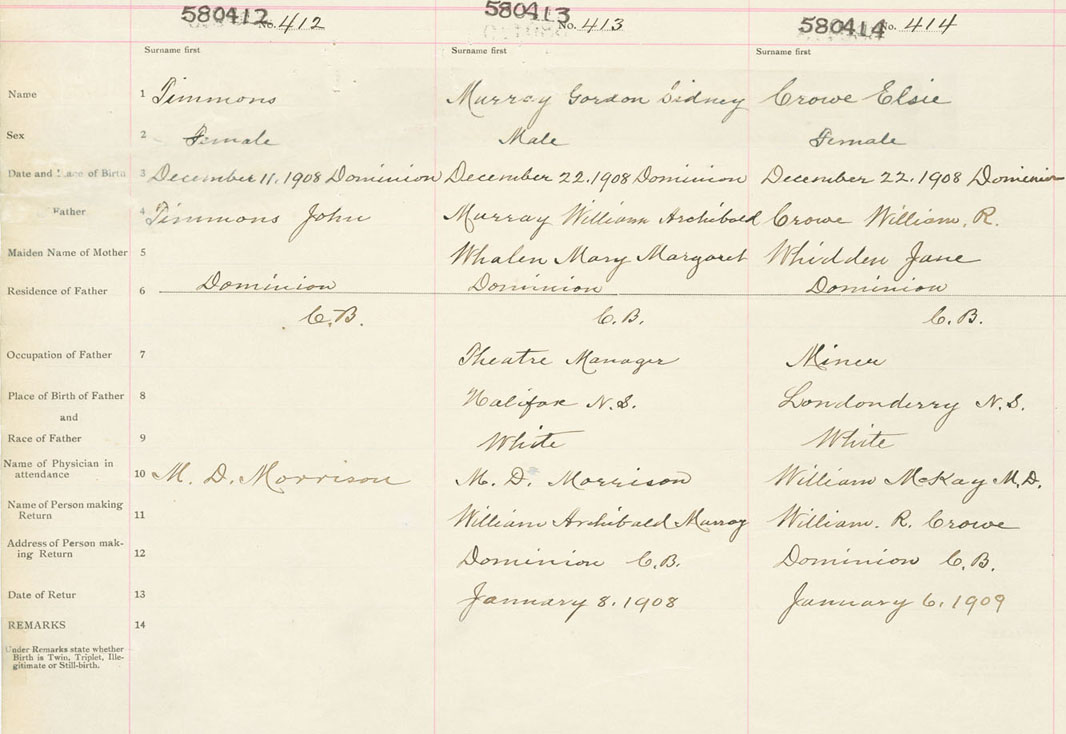 580412 No. 412 580413 No. 413 580414 No. 414
Surname first Surname first Surname first
Name 1 Timmons Murray Gordon Sidney Crowe Elsie
Sex 2 Female Male Female
Date and Place of Birth 3 December 11. 1908 Dominion December 22. 1908 Dominion December 22. 1908 Dominion
Father 4 Timmons John Murray William Archibald Crowe William. R.
Maiden Name of Mother 5 Whalen Mary Margaret Whidden Jane
Residence of Father 6 Dominion Dominion Dominion
C.B. C.B. C.B.
Occupation of Father 7 Theatre Manager Miner
Place of Birth of Father 8 Halifax N.S. Londonderry N.S.
and
Race of Father 9 White White
Name of Physician in
attendance 10 M. D. Morrison M. D. Morrison William McKay M.D.
Name of Person making
Return 11 William Archibald Murray William. R. Crowe
Address of Person mak-
ing Return 12 Dominion C.B. Dominion C.B.
Date of Retur 13 January 8. 1908 January 6. 1909
REMARKS 14
Under Remarks state whether
Birth is Twin, Triplet, Ille-
gitimate or Still-birth.